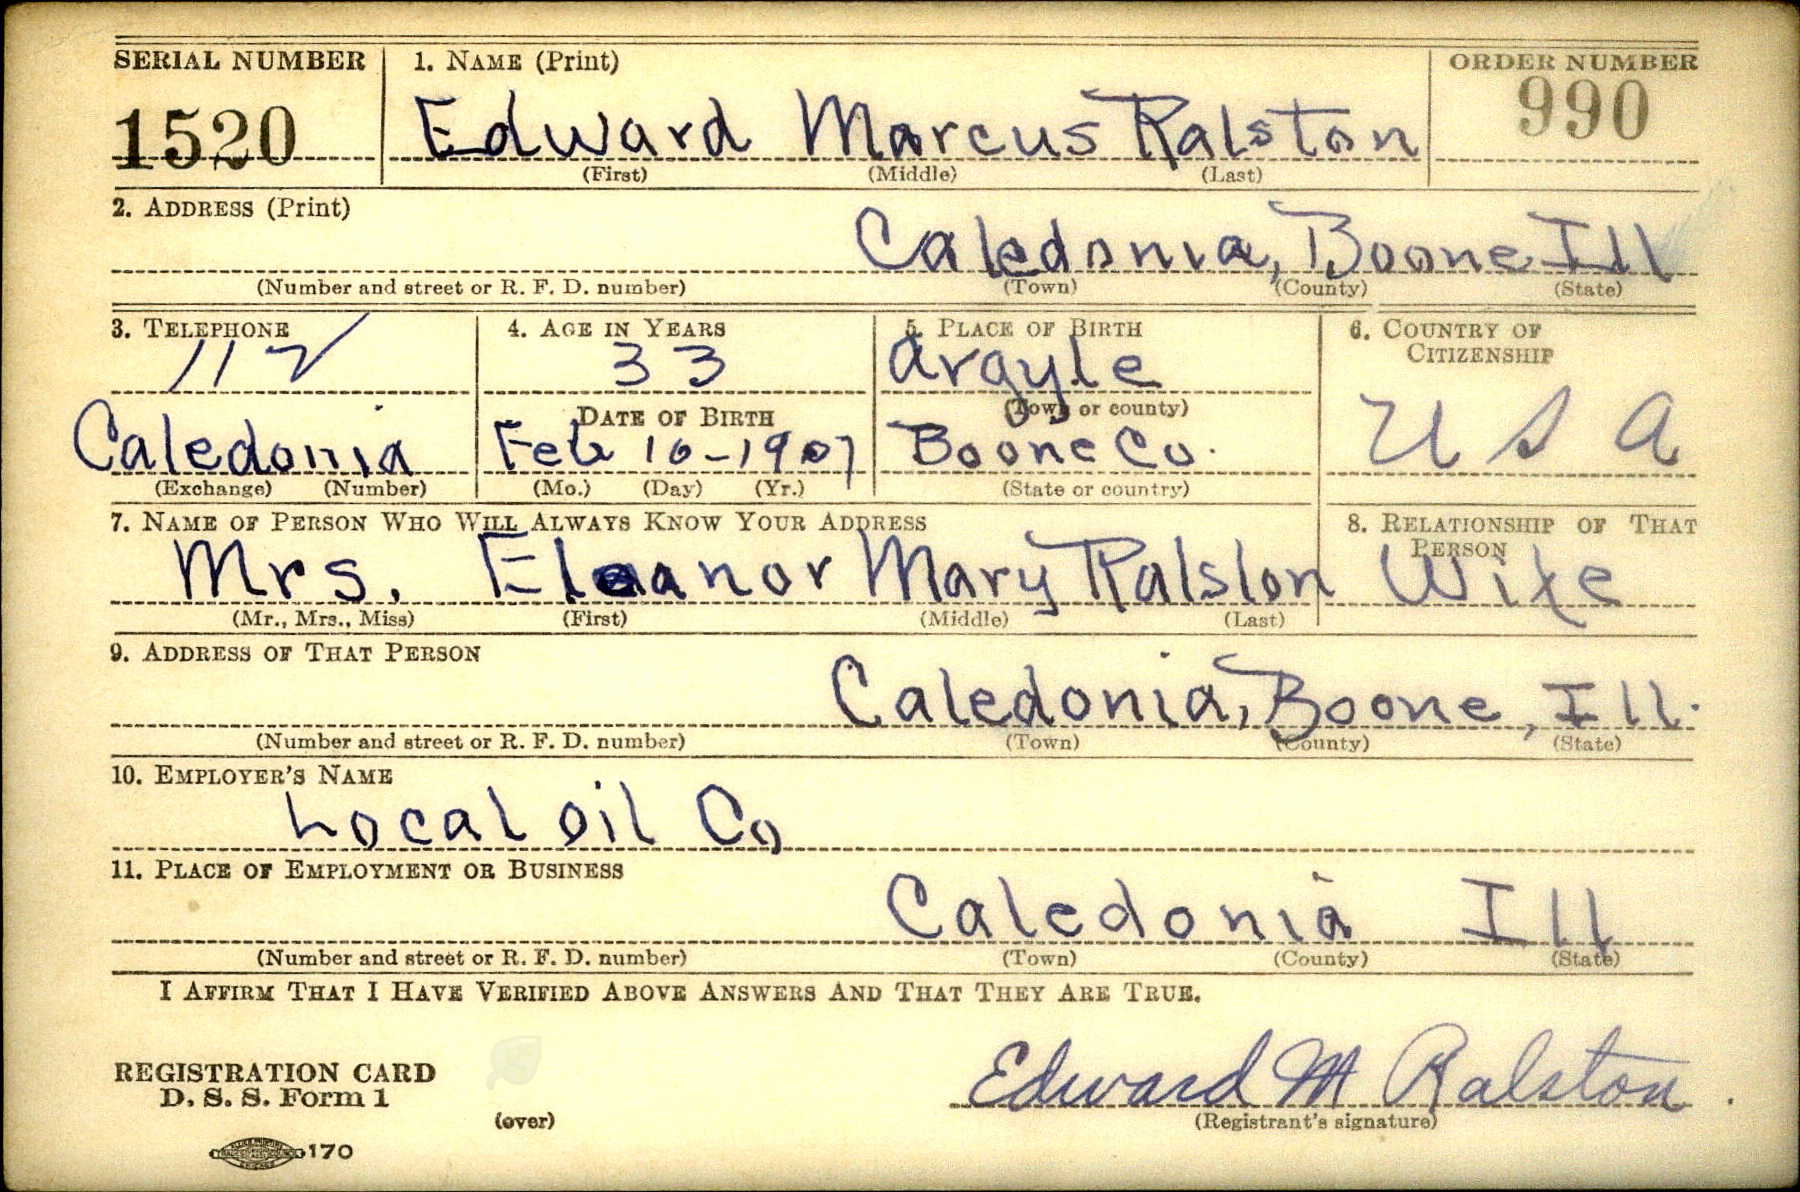 SERIAL NUMBER 1. NAME (Print) ORDER NUMBER
1520 Edward Marcus Ralston 990
(First) (Middle) (Last)
2. ADDRESS (Print)
Caledonia, Boone Ill
(Number and street or R. F. D. number) (Town) (County) (State)
3. TELEPHONE 4. AGE IN YEARS 5. PLACE OF BIRTH 6. COUNTRY OF CITIZENSHIP
112 33 Argyle
DATE OF BIRTH (Town or county)
Caledonia Feb 10-1907 Boone Co. U S A
(Exchange) (Number) (Mo.) (Day) (Yr.) (State or country)
7. NAME OF PERSON WHO WILL ALWAYS KNOW YOUR ADDRESS 8. RELATIONSHIP OF THAT PERSON
Mrs. Eleanor Mary Ralston Wife
(Mr., Mrs., Miss) (First) (Middle) (Last)
9. ADDRESS OF THAT PERSON
Caledonia, Boone, Ill.
(Number and street or R. F. D. number) (Town) (County) (State)
10. EMPLOYER'S NAME
Local Oil Co
11. PLACE OF EMPLOYMENT OR BUSINESS
Caledonia Ill
(Number and street or R. F. D. number) (Town) (County) (State)
I AFFIRM THAT I HAVE VERIFIED ABOVE ANSWERS AND THAT THEY ARE TRUE.
REGISTRATION CARD
D. S. S. Form 1
Edward M Ralston
(over) (Registrant's signature)
170